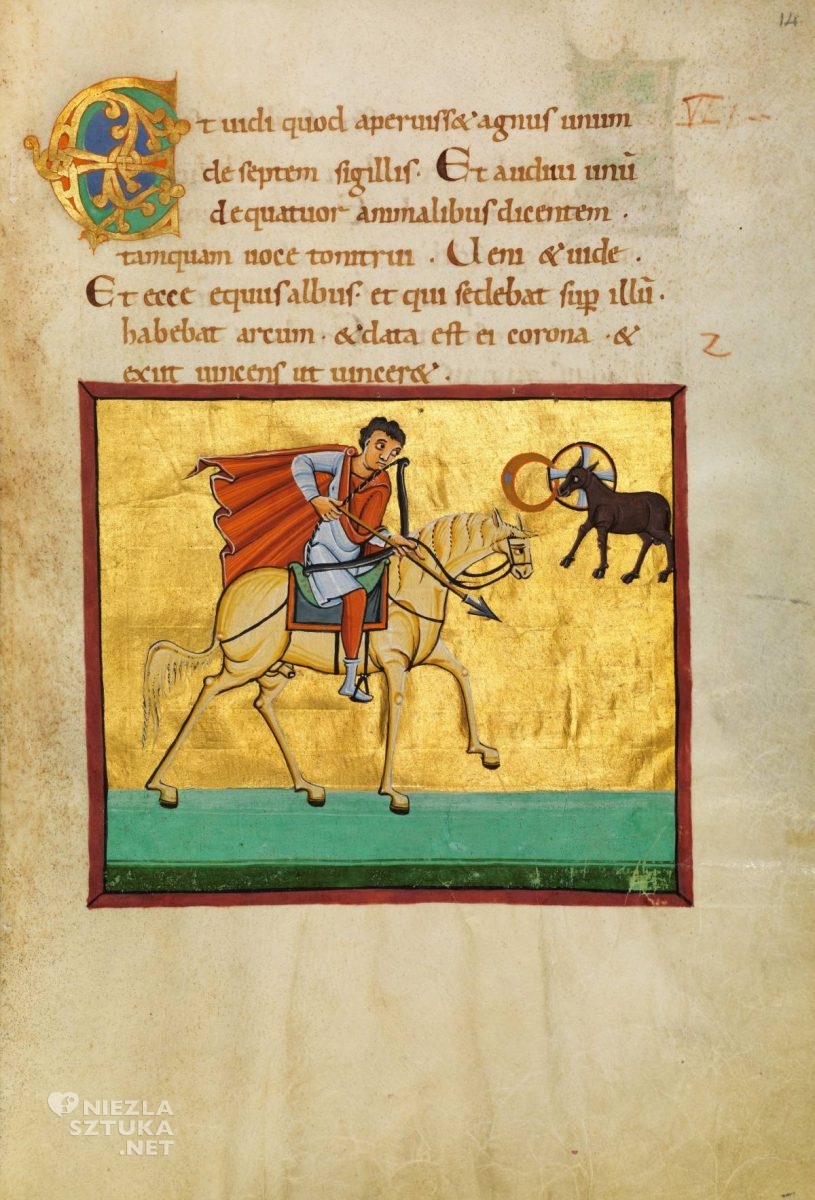 14
Et uidi quod aperuiss& agnus unum
VI
de septem sigillis. Et audiui unū
de quatuor animalibus dicentem.
tamquam uoce tonitrui. Ueni & uide.
Et ecce equus albus. et qui sedebat sup illū.
habebat arcum. & data est ei corona. &
2
exiit uincens ut uincer&.
NIEZLA
SZTUKA
.NET